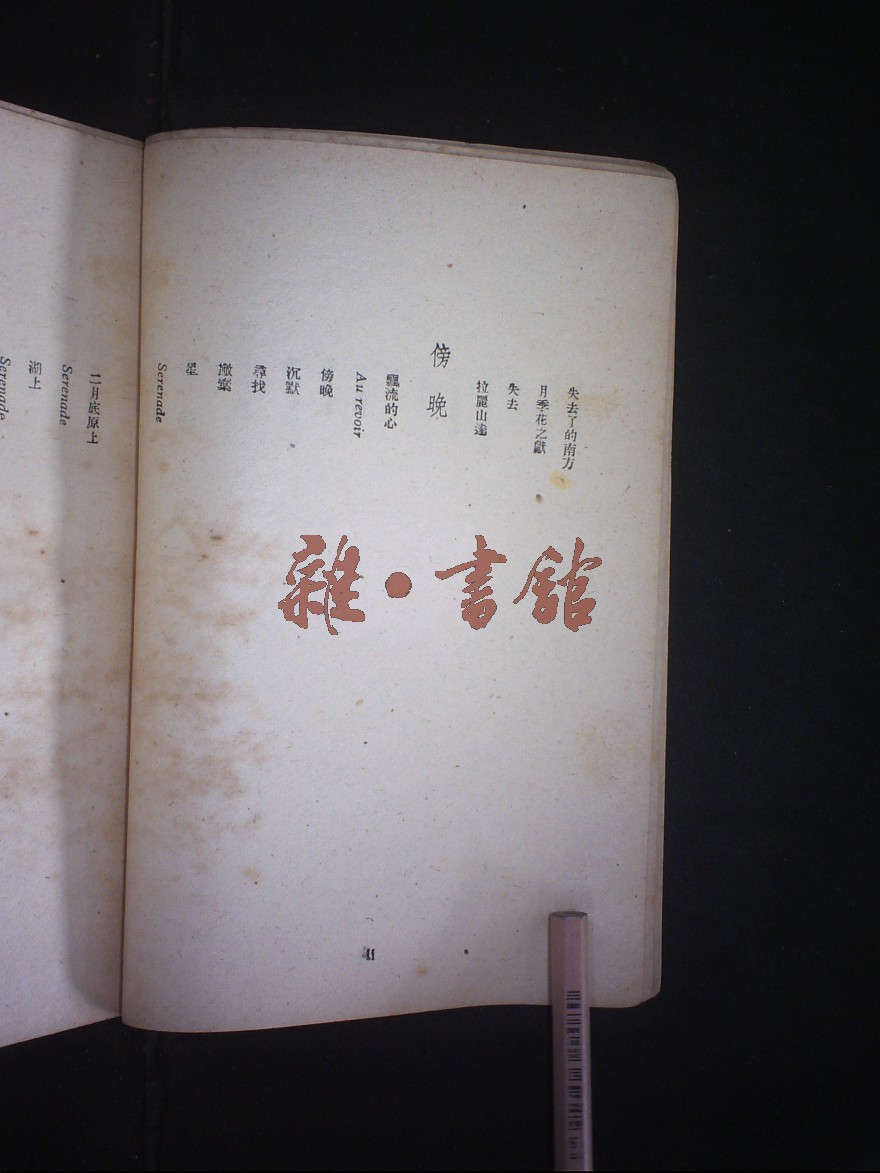 失去了的南方
月季花之獻
失去
拉麗山達
傍晚
飄流的心
Au revoir
傍晚
沉默
尋找
撤棄
星
Serenade
十一月底原上
Serenade
湖上
Serenade
雜·書館